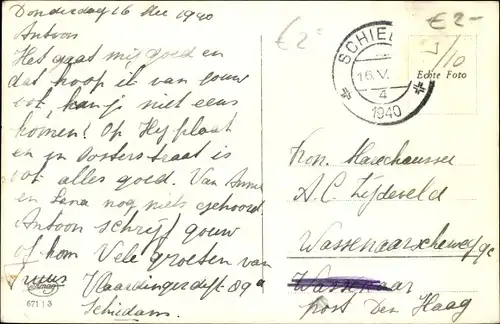 Donderdag 16 Mei 1940
Antoon
Het gaat mij goed en
dat hoop ik van jouw
ook kan je niet eens
komen! Op Heyplaat
en in Oosterstraat is
ook alles goed. Van Anna
en Lena nog niets gehoord.
Antoon schrijf gouw
of kom Vele groeten van
Vlaardingerdijk 89a
Schiedam.
671 | 3
€ 2-
€ 2-
SCHIE
16.V.
4
1940
1/10
Echte Foto
Kon. Marechaussee
A.C. Lijdeveld
Wassenaarscheweg 9c
Wassenaar
post Den Haag